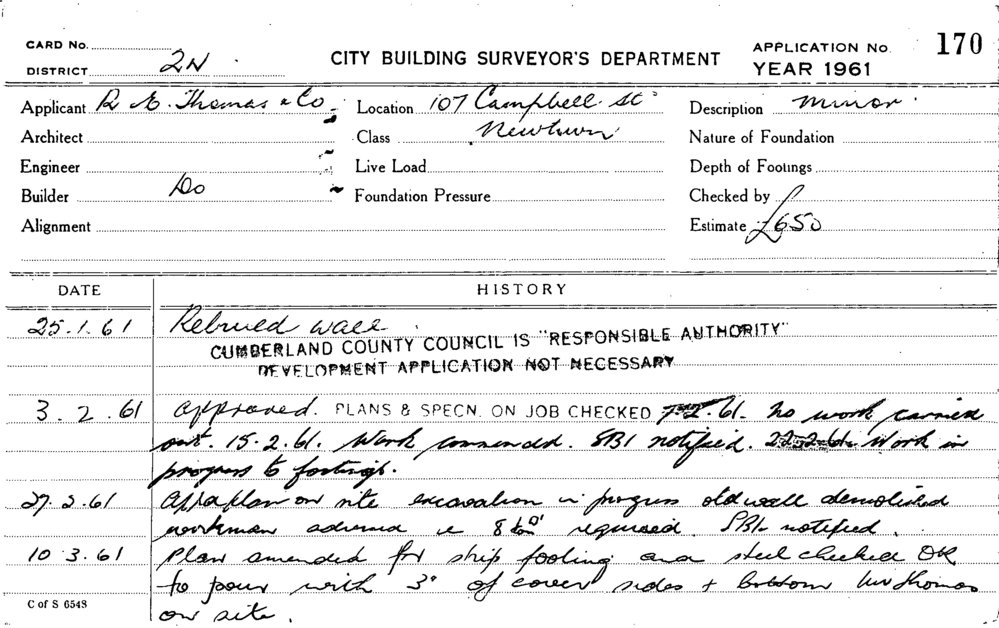 CARD No.
DISTRICT 2N
CITY BUILDING SURVEYOR'S DEPARTMENT
APPLICATION No. 170
YEAR 1961
Applicant R. E. Thomas & Co
Location 107 Campbell St
Description Minor
Architect
Class Newtown
Nature of Foundation
Engineer
Live Load
Depth of Footings
Builder Do
Foundation Pressure
Checked by
Alignment
Estimate £650
DATE HISTORY
25.1.61 Rebuild wall.
CUMBERLAND COUNTY COUNCIL IS "RESPONSIBLE AUTHORITY"
DEVELOPMENT APPLICATION NOT NECESSARY
3.2.61 approved. PLANS & SPECN. ON JOB CHECKED 7.2.61. No work carried
out. 15.2.61. Work commenced. SBI notified. 22.2.61. Work in
progress to footings.
27.2.61 plan on site excavation in progress old wall demolished
workman advised required. SBI notified.
10.3.61 Plan amended for strip footing and steel checked OK
to pour with 3" of cover sides + bottom Mr Thomas
on site.
C of S 6548